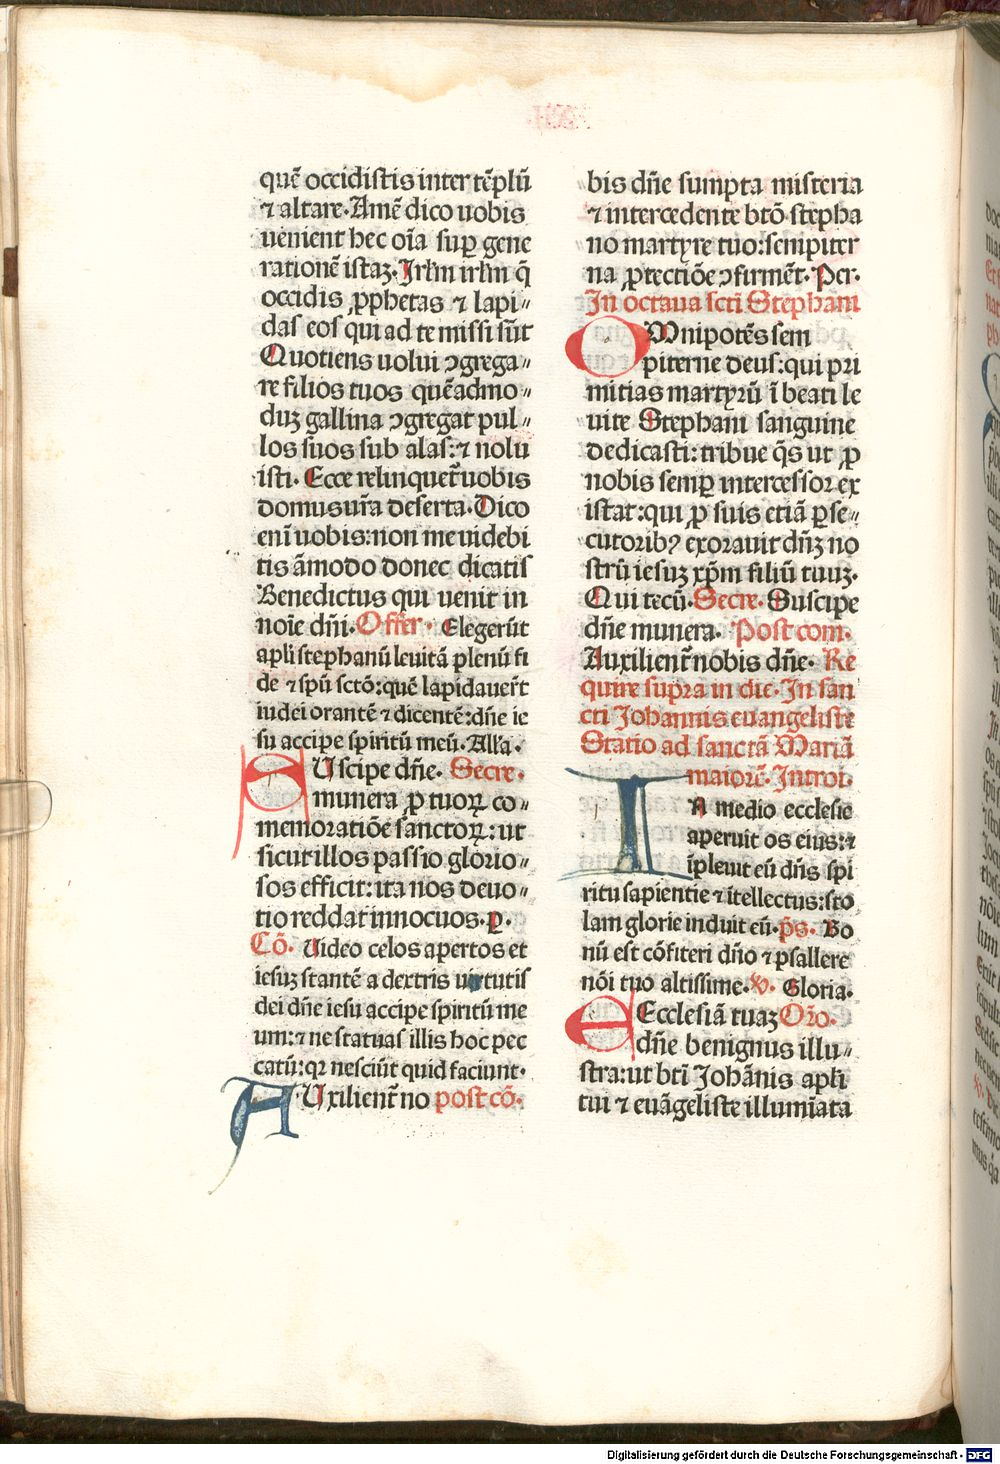 quē occidistis inter tēplū
⁊ altare. Amē dico uobis
uenient hec oīa suꝑ gene
rationē istaꝫ. Irl̄m irl̄m q̄
occidis ꝓphetas ⁊ lapi⸗
das eos qui ad te missi sūt
Quotiens uolui ꝯgrega⸗
re filios tuos quēadmo⸗
duꝫ gallina ꝯgregat pul⸗
los suos sub alas: ⁊ nolu
isti. Ecce relinquet̄ uobis
domus ur̄a deserta. Dico
eni uobis: non me uidebi
tis āmodo donec dicatis
Benedictus qui uenit in
noīe dn̄i. Offer̄. Elegerūt
apl̄i stephanū leuitā plenū fi
de ⁊ spū sctō: quē lapidauer̄t
iudei orantē ⁊ dicentē: dn̄e ie
su accipe spiritū meū. All'a.
SUscipe dn̄e. Secre.
munera ꝓ tuoꝝ co⸗
memoratiōe sanctoꝝ: ut
sicut illos passio glorio⸗
sos efficit: ita nos deuo⸗
tio reddat innocuos. ꝑ.
Cō. Uideo celos apertos et
iesuꝫ stantē a dextris uirtutis
dei dn̄e iesu accipe spiritū me
um: ⁊ ne statuas illis hoc pec
catū: qꝛ nesciūt quid faciunt.
AUxilient̄ no post cō.
bis dn̄e sumpta misteria
⁊ intercedente btō stepha
no martyre tuo: sempiter
na ꝓtectiōe ꝯfirmēt. Per.
In octaua scti Stephani
OMnipotēs sem
piterne deus: qui pri
mitias martyrū ī beati le
uite Stephani sanguine
dedicasti: tribue q̄s ut ꝓ
nobis semꝑ intercessor ex
istat: qui ꝓ suis etiā ꝑse⸗
cutoribꝰ exorauit dn̄ꝫ no
strū iesuꝫ xp̄m filiū tuuꝫ.
Qui tecū. Secre. Suscipe
dn̄e munera. Post com.
Auxilient̄ nobis dn̄e. Re
quire supra in die. In san
cti Johannis euangeliste
Statio ad sanctā Mariā
maiorē. Introi.
IN medio ecclesie
aperuit os eius: ⁊
īpleuit eū dn̄s spi
ritu sapientie ⁊ ītellectus: sto
lam glorie induit eū. p̄s. Bo
nū est cōfiteri dn̄o ⁊ psallere
nōi tuo altissime. ℣. Gloria.
EEcclesiā tuaꝫ Orō.
dn̄e benignus illu⸗
stra: ut bt̄i Johānis apl̄i
tui ⁊ euāgeliste illumīata
Digitalisierung gefördert durch die Deutsche Forschungsgemeinschaft - DFG